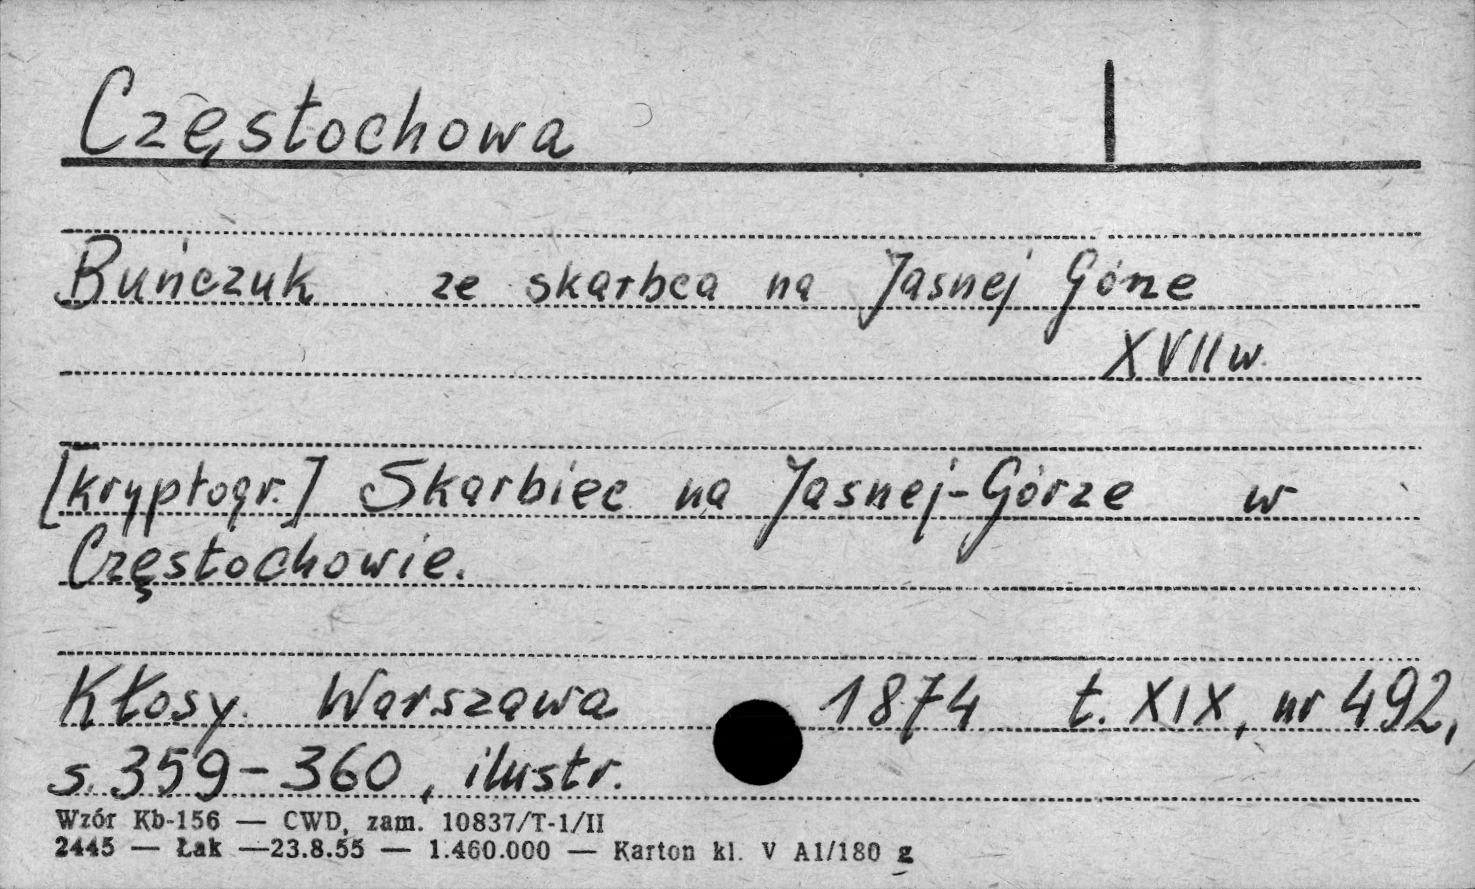 Częstochowa
Buńczuk ze skarbca na Jasnej Górze
XVII w.
[kryptogr.] Skarbiec na Jasnej-Górze w
Częstochowie.
Kłosy. Warszawa 1874 t. XIX, nr 492,
s. 359-360, ilustr.
Wzór Kb-156 — CWD, zam. 10837/T-1/II
2445 — Łak —23.8.55 — 1.460.000 — Karton kl. V A1/180 g